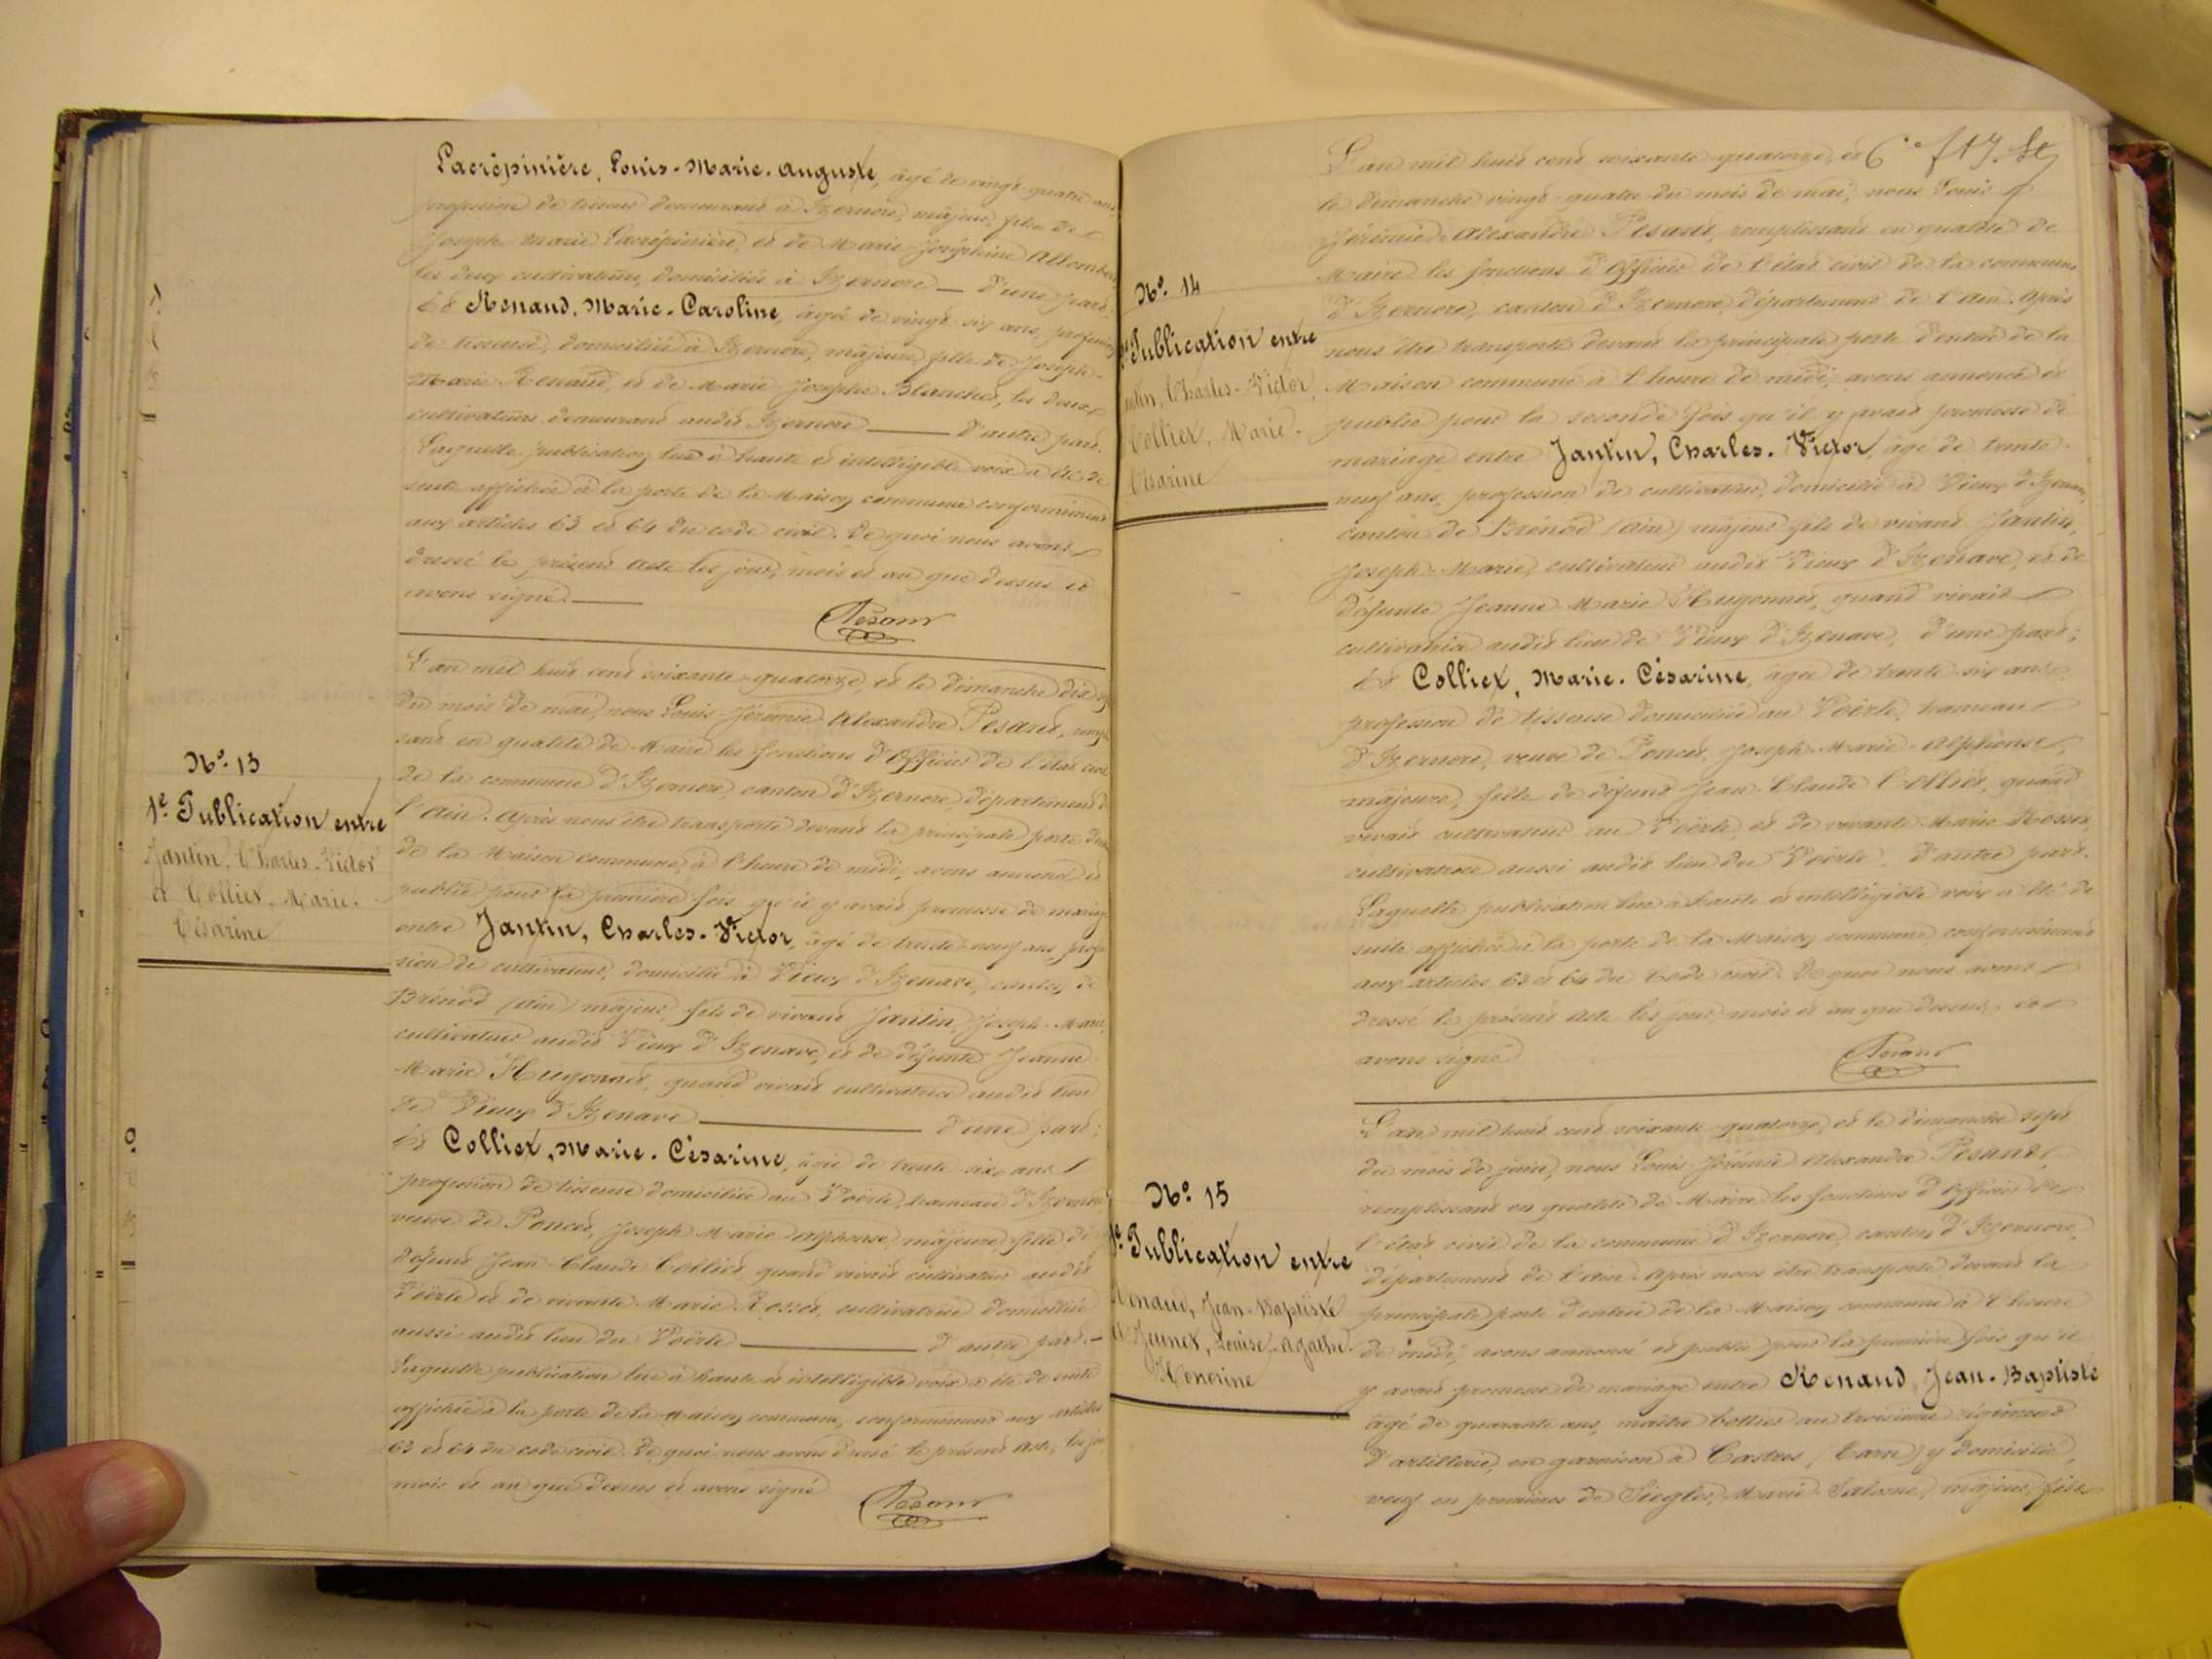 Lacrépinière, Louis-Marie-Auguste, âgé de vingt-quatre ans,
profession de tisseur demeurant à Izernore, majeur, fils de
Joseph Marie Lacrépinière, et de Marie-Joséphine
les deux cultivateurs, domiciliés à Izernore — d'une part;
Et Renaud, Marie-Caroline, âgée de vingt-six ans, profession
de tisseuse, domiciliée à Izernore, majeure, fille de Joseph-
Marie Renaud, et de Marie Josephte Blanchet, les deux
cultivateurs demeurant audit Izernore — d'autre part.
Laquelle publication lue à haute et intelligible voix a été de
suite affichée à la porte de la Maison commune conformément
aux articles 63 et 64 du code civil. De quoi nous avons
dressé le présent acte les jour, mois et an que dessus et
avons signé. —
Pesant
No. 13
1e. Publication entre
Jantin, Charles-Victor
et Colliex, Marie-
Césarine
L'an mil huit cent soixante-quatorze, et le dimanche dix-sept
du mois de mai, nous Louis-Jérémie-Alexandre Pesant, remplis-
sant en qualité de Maire les fonctions d'Officier de l'état civil
de la commune d'Izernore, canton d'Izernore département de
l'Ain. Après nous être transporté devant la principale porte
de la Maison commune, à l'heure de midi, avons annoncé et
publié pour la première fois qu'il y avait promesse de mariage
entre Jantin, Charles-Victor, âgé de trente-neuf ans, profes-
sion de cultivateur, domicilié à Vieux d'Izenave, canton de
Brénod (Ain) majeur, fils de vivant Jantin, Joseph-Marie,
cultivateur audit Vieux d'Izenave, et de défunte Jeanne-
Marie Hugonnet, quand vivait cultivatrice audit lieu
de Vieux d'Izenave — d'une part;
Et Colliex, Marie-Césarine, âgée de trente-six ans
profession de tisseuse domiciliée au Voërle, hameau d'Izernore
veuve de Poncet, Joseph Marie Alphonse, majeure, fille de
défunt Jean-Claude Colliex, quand vivait cultivateur audit
Voërle et de vivante Marie Rosset, cultivatrice domiciliée
aussi audit lieu du Voërle — d'autre part. —
Laquelle publication lue à haute et intelligible voix a été de suite
affichée à la porte de la Maison commune, conformément aux articles
63 et 64 du code civil. De quoi nous avons dressé le présent acte, les jour
mois et an que dessus et avons signé
Pesant
6e
No. 14
Publication entre
Jantin, Charles-Victor,
Colliex, Marie-
Césarine
L'an mil huit cent soixante-quatorze, et
le dimanche vingt-quatre du mois de mai, nous Louis
Jérémie-Alexandre Pesant, remplissant en qualité de
Maire les fonctions d'Officier de l'état civil de la commune
d'Izernore, canton d'Izernore, département de l'Ain. Après
nous être transporté devant la principale porte d'entrée de la
Maison commune à l'heure de midi, avons annoncé et
publié pour la seconde fois qu'il y avait promesse de
mariage entre Jantin, Charles-Victor, âgé de trente-
neuf ans, profession de cultivateur, domicilié à Vieux d'Izenave,
canton de Brénod (Ain) majeur fils de vivant Jantin,
Joseph-Marie, cultivateur audit Vieux d'Izenave, et de
défunte Jeanne-Marie Hugonnet, quand vivait
cultivatrice audit lieu de Vieux d'Izenave, d'une part;
Et Colliex, Marie-Césarine, âgée de trente-six ans
profession de tisseuse domiciliée au Voërle, hameau
d'Izernore, veuve de Poncet, Joseph-Marie-Alphonse,
majeure, fille de défunt Jean-Claude Colliex, quand
vivait cultivateur au Voërle, et de vivante Marie Rosset,
cultivatrice aussi audit lieu du Voërle. d'autre part.
Laquelle publication lue à haute et intelligible voix a été de
suite affichée à la porte de la Maison commune, conformément
aux articles 63 et 64 du Code civil. De quoi nous avons
dressé le présent acte les jour mois et an que dessus, et
avons signé
Pesant
No. 15
1e. Publication entre
Renaud, Jean-Baptiste
et Jeunet, Louise-Agathe-
Honorine
L'an mil huit cent soixante-quatorze, et le dimanche sept
du mois de juin, nous Louis-Jérémie Alexandre Pesant,
remplissant en qualité de Maire les fonctions d'Officier de
l'état civil de la commune d'Izernore, canton d'Izernore,
département de l'Ain. Après nous être transporté devant la
principale porte d'entrée de la Maison commune à l'heure
de midi, avons annoncé et publié pour la première fois qu'il
y avait promesse de mariage entre Renaud, Jean-Baptiste
âgé de quarante ans, maître bottier au troisième régiment
d'artillerie, en garnison à Castres (Tarn) y domicilié,
veuf en premières de Siegler, Marie-Salomé, majeur, fils